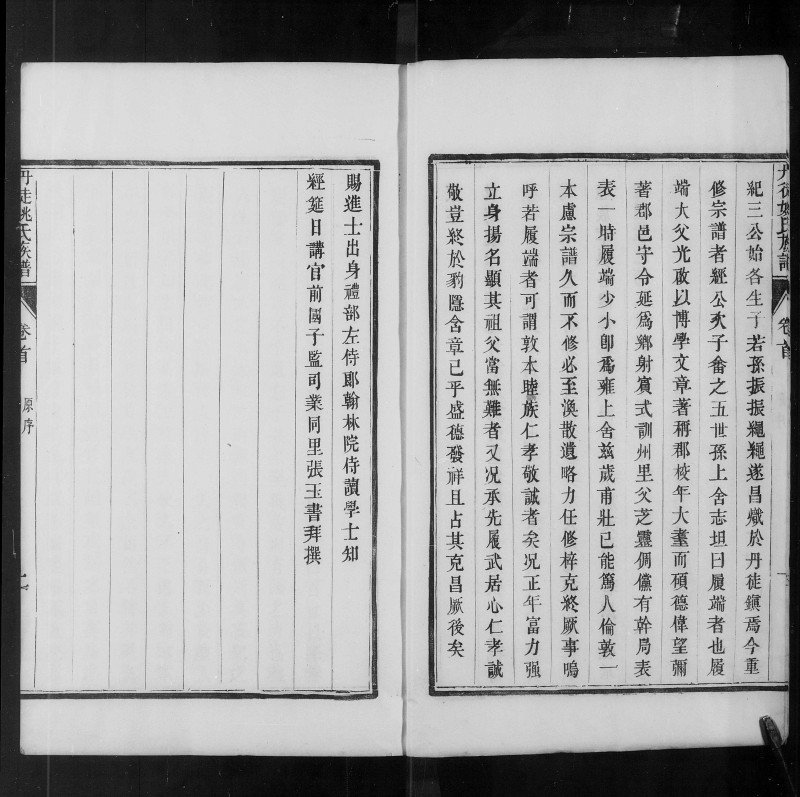 丹徒姚氏族譜
卷首
紀三公始各生子若孫振振繩繩遂昌熾於丹徒鎭焉今重
修宗譜者經公次子畬之五世孫上舍志坦曰履端者也履
端大父光敢以博學文章著稱郡棱年大耋而碩德偉望彌
著郡邑守令延爲鄉射賓式訓州里父芝靈倜儻有幹局表
表一時履端少小卽爲雍上舍兹歲甫壯已能篤人倫敦一
本慮宗譜久而不修必至渙散遺略力任修梓克終厥事嗚
呼若履端者可謂敦本睦族仁孝敬誠者矣况正年富力强
立身揚名顯其祖父當無難者又况承先履武居心仁孝誠
敬豈終於豹隱舍章已乎盛德發祥且占其克昌厥後矣
賜進士出身禮部左侍郞翰林院侍讀學士知
經筵日講官前國子監司業同里張玉書拜撰
丹徒姚氏族譜
卷首
原序